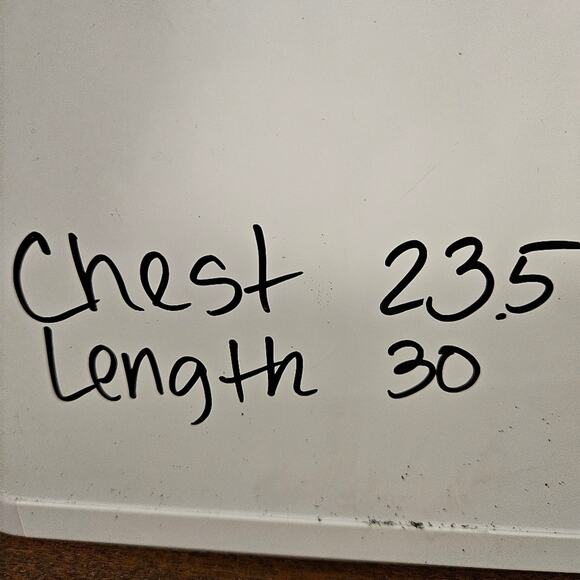 Chest 23.5
Length 30